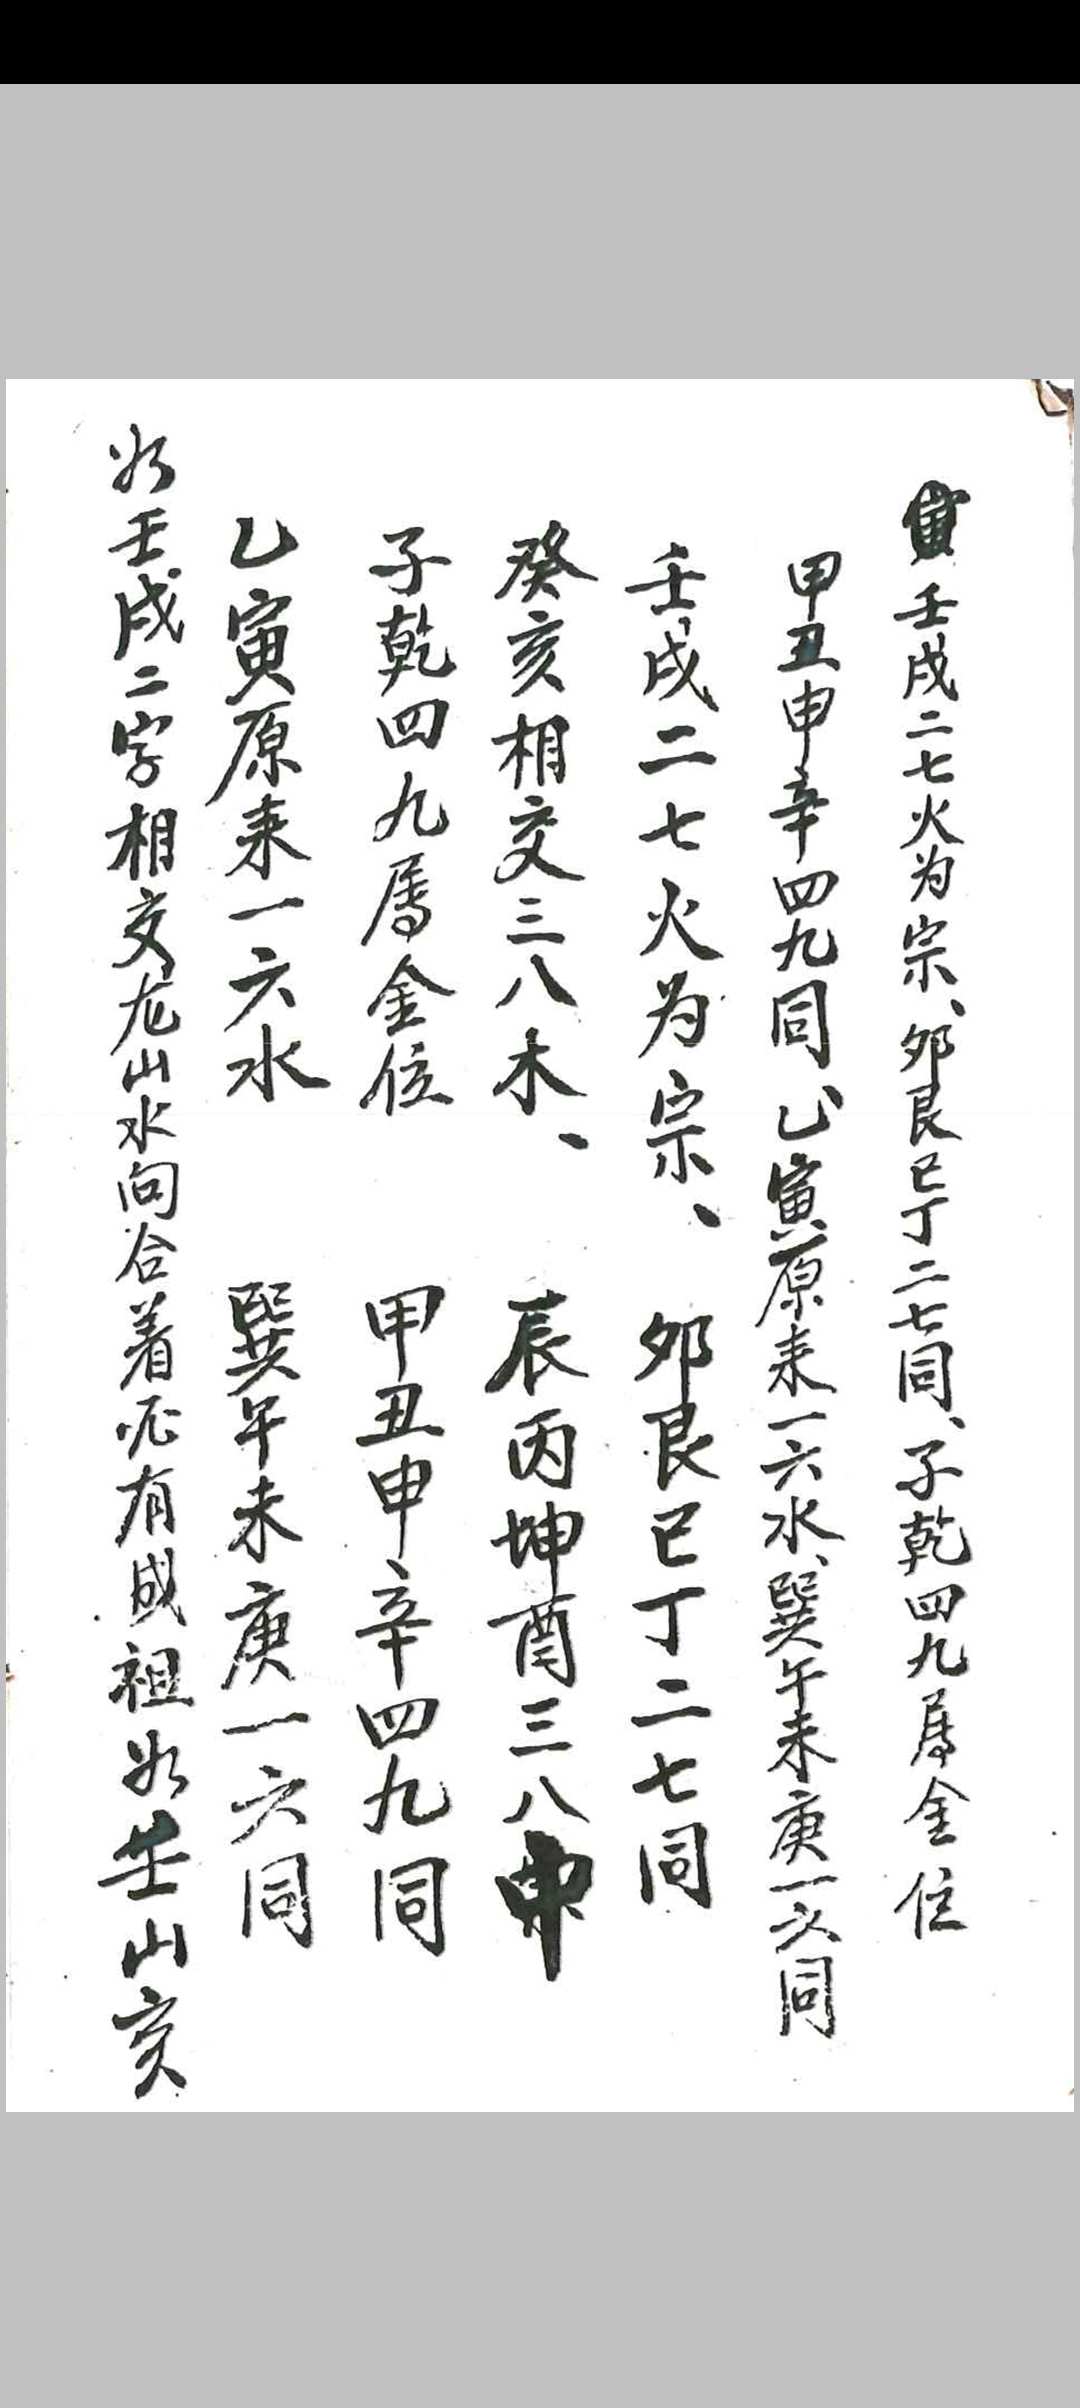 寅壬戌二七火为宗、夘艮巳丁二七同、子乾四九属金位
甲丑申辛四九同、乙寅原来一六水、巽午未庚一六同
壬戌二七火为宗、 夘艮巳丁二七同
癸亥相交三八木、 辰丙坤酉三八
子乾四九属金位 甲丑申辛四九同
乙寅原来一六水 巽午未庚一六同
如壬戌二字相交龙山水向合着必有成祖如壬山亥